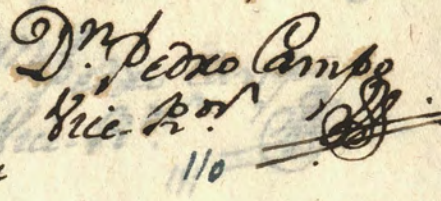 Dn. Pedro Campo
Vice-Ror.
110